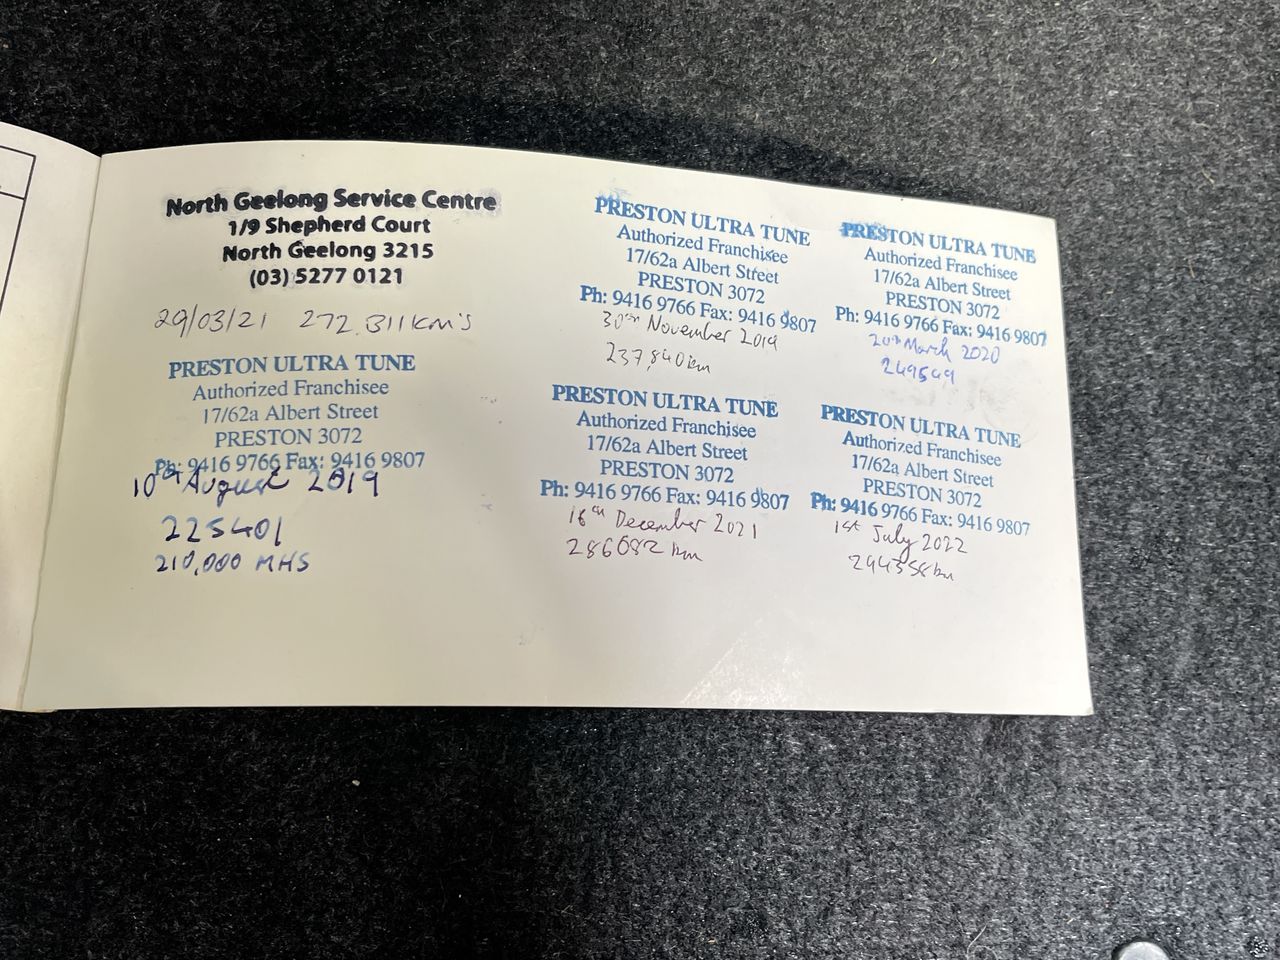 North Geelong Service Centre
1/9 Shepherd Court
North Geelong 3215
(03) 5277 0121
29/03/21 272.311km's
PRESTON ULTRA TUNE
Authorized Franchisee
17/62a Albert Street
PRESTON 3072
Ph: 9416 9766 Fax: 9416 9807
10th August 2019
225401
210,000 MHS
PRESTON ULTRA TUNE
Authorized Franchisee
17/62a Albert Street
PRESTON 3072
Ph: 9416 9766 Fax: 9416 9807
30th November 2019
237,840km
PRESTON ULTRA TUNE
Authorized Franchisee
17/62a Albert Street
PRESTON 3072
Ph: 9416 9766 Fax: 9416 9807
16th December 2021
286082 km
PRESTON ULTRA TUNE
Authorized Franchisee
17/62a Albert Street
PRESTON 3072
Ph: 9416 9766 Fax: 9416 9807
20th March 2020
249549
PRESTON ULTRA TUNE
Authorized Franchisee
17/62a Albert Street
PRESTON 3072
Ph: 9416 9766 Fax: 9416 9807
1st July 2022
294358km